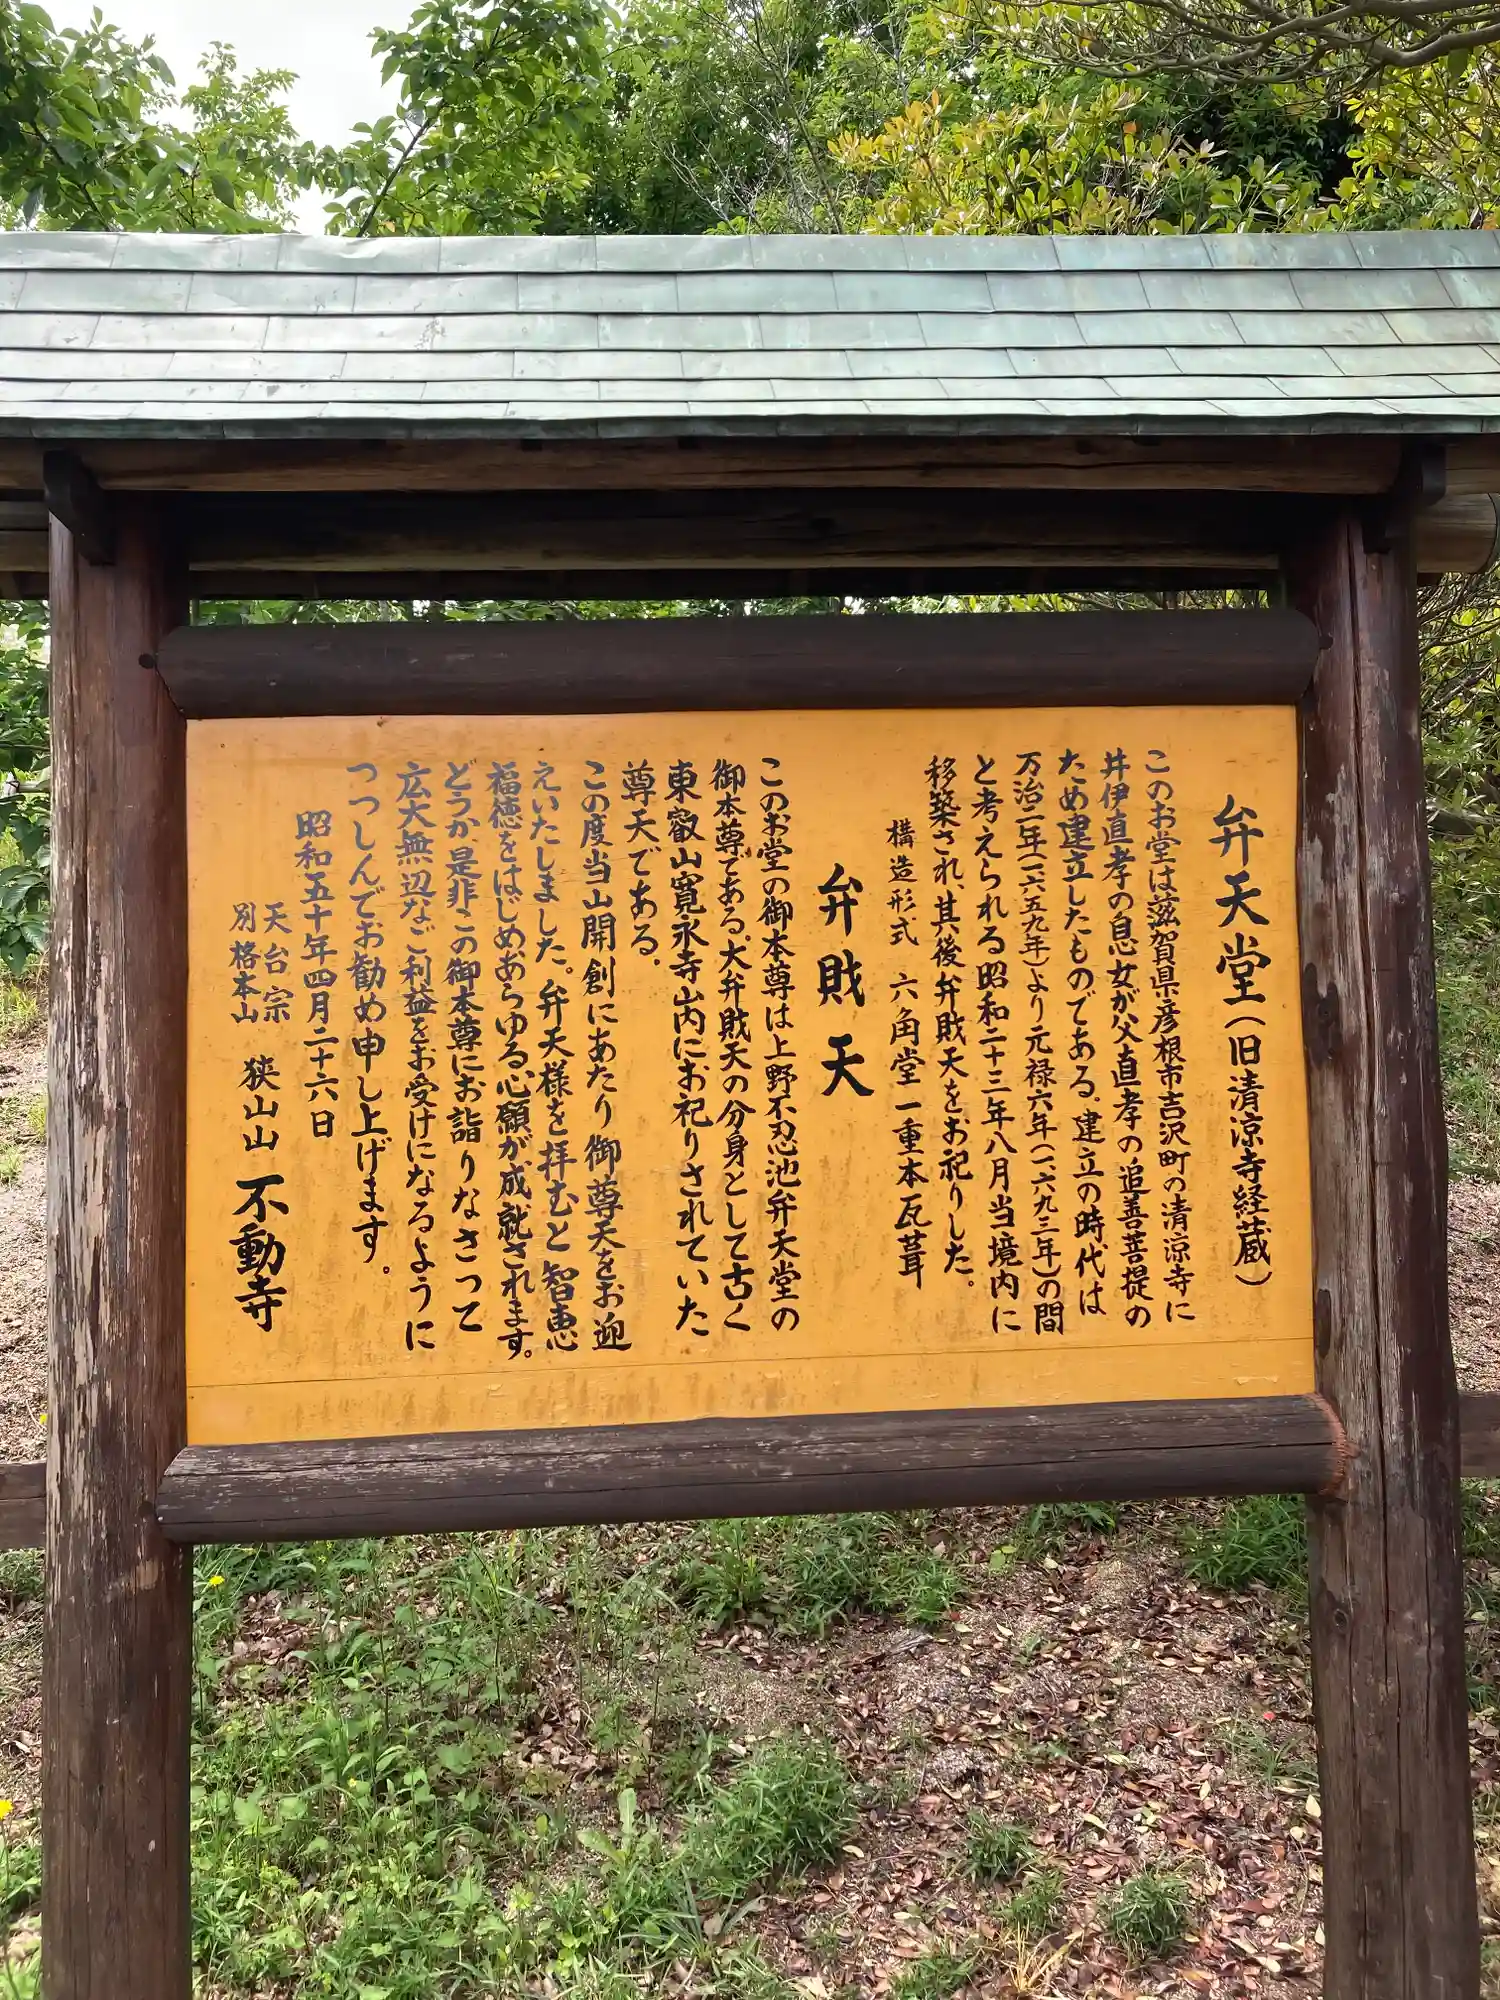 弁天堂(旧清涼寺経蔵)
このお堂は滋賀県彦根市吉沢町の清涼寺に
井伊直孝の息女が父直孝の追善菩提の
ため建立したものである。建立の時代は
万治二年(一六五九年)より元禄六年(一六九三年)の間
と考えられる昭和二十三年八月当境内に
移築され、其後弁財天をお祀りした。
構造形式 六角堂一重本瓦葺
弁財天
このお堂の御本尊は上野不忍池弁天堂の
御本尊である。大弁財天の分身として古く
東叡山寛永寺山内にお祀りされていた
尊天である。
この度当山開創にあたり御尊天をお迎
えいたしました。弁天様を拝むと智恵
福徳をはじめあらゆる心願が成就されます。
どうか是非この御本尊にお詣りなさって
広大無辺なご利益をお受けになるように
つつしんでお勧め申し上げます。
昭和五十年四月二十六日
天台宗
別格本山 狭山山 不動寺